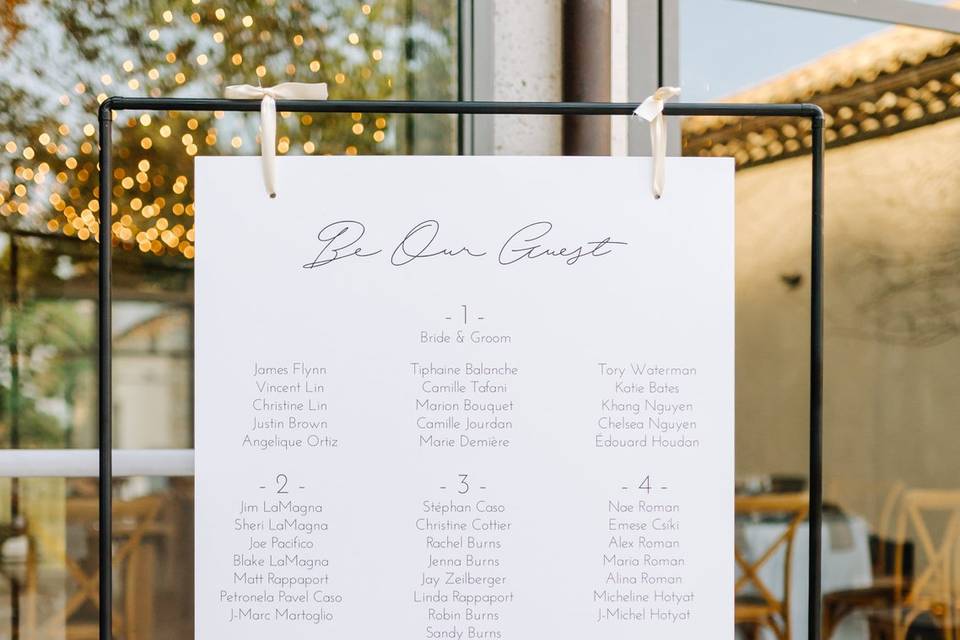 Be Our Guest
- 1 -
Bride & Groom
James Flynn
Vincent Lin
Christine Lin
Justin Brown
Angelique Ortiz
Tiphaine Balanche
Camille Tafani
Marion Bouquet
Camille Jourdan
Marie Demière
Tory Waterman
Katie Bates
Khang Nguyen
Chelsea Nguyen
Édouard Houdan
- 2 -
Jim LaMagna
Sheri LaMagna
Joe Pacifico
Blake LaMagna
Matt Rappaport
Petronela Pavel Caso
J-Marc Martoglio
- 3 -
Stéphan Caso
Christine Cottier
Rachel Burns
Jenna Burns
Jay Zeilberger
Linda Rappaport
Robin Burns
Sandy Burns
- 4 -
Nae Roman
Emese Csíki
Alex Roman
Maria Roman
Alina Roman
Micheline Hotyat
J-Michel Hotyat